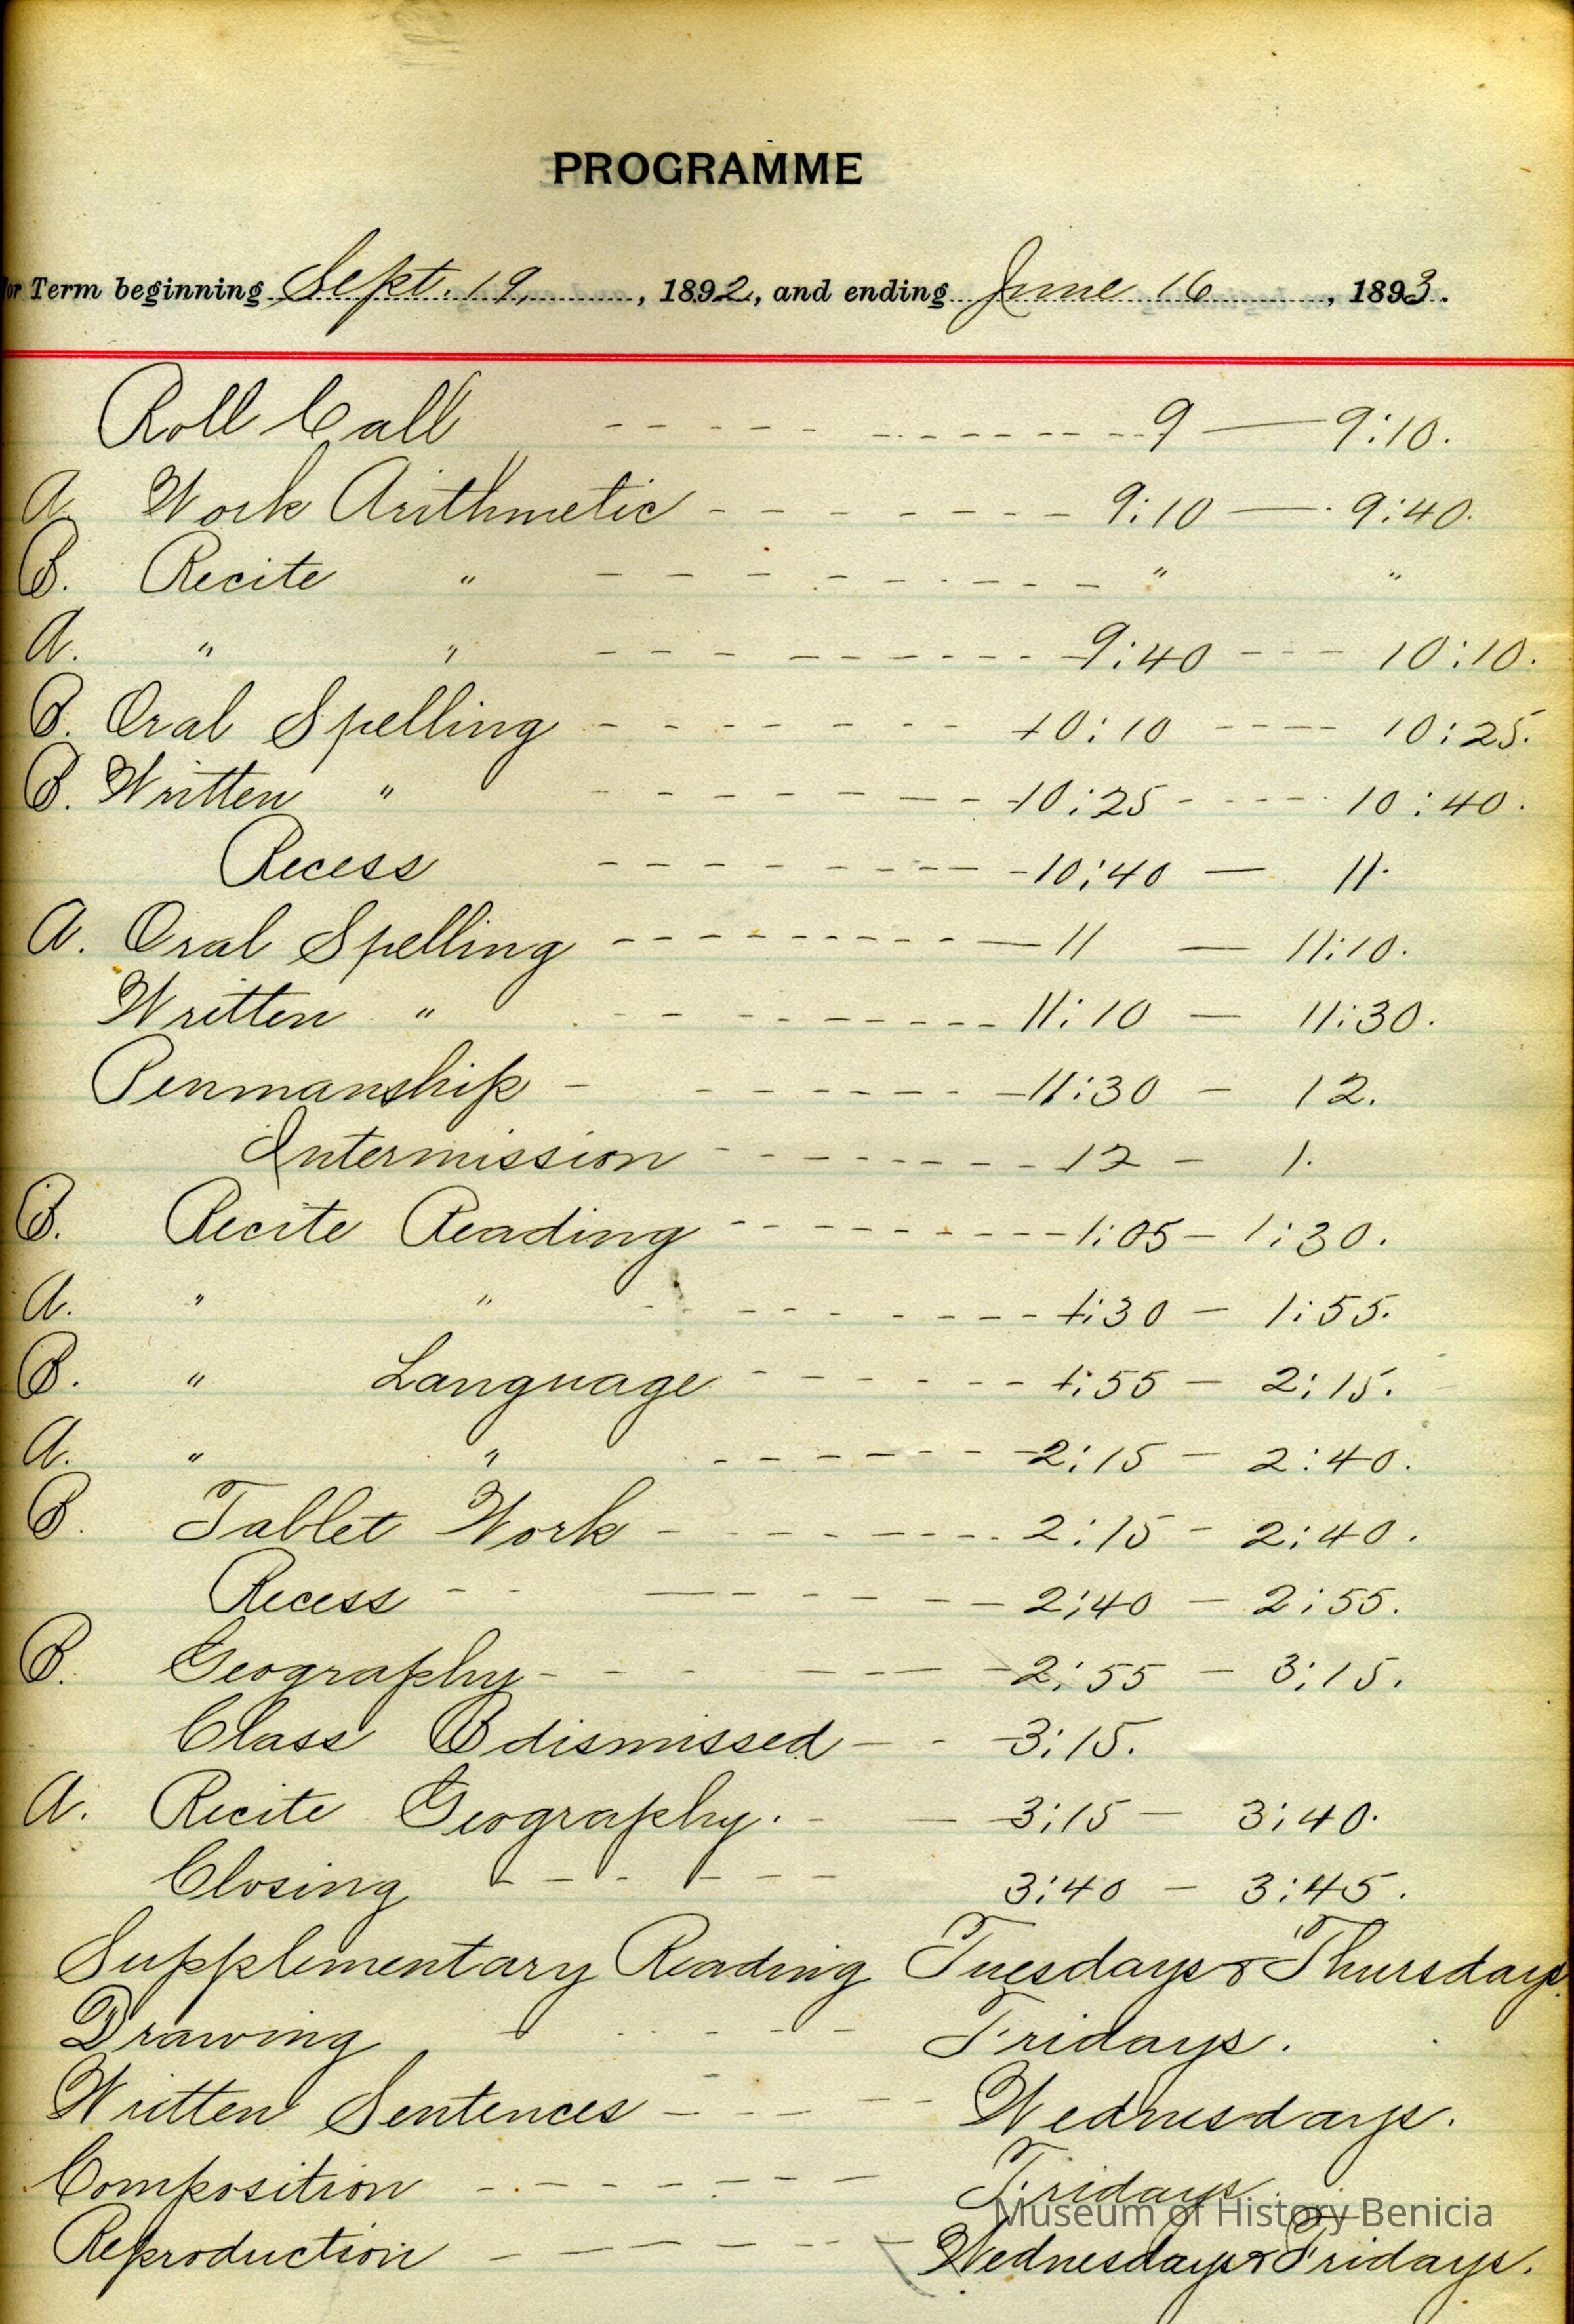 PROGRAMME
or Term beginning Sept. 19, , 1892, and ending June 16 , 1893.
Roll Call - - - - - - - - - - - - 9 — 9:10.
A. Work Arithmetic - - - - - - - - 9:10 — 9:40.
B. Recite " - - - - - - - - - " "
A. " " - - - - - - - - - 9:40 - - - 10:10.
B. Oral Spelling - - - - - - - - 10:10 - - - - 10:25.
B. Written " - - - - - - - - 10:25 - - - - 10:40.
Recess - - - - - - - - - 10:40 — 11.
A. Oral Spelling - - - - - - - - - 11 — 11:10.
Written " - - - - - - - - - 11:10 — 11:30.
Penmanship - - - - - - - - 11:30 - 12.
Intermission - - - - - - - - 12 - 1.
B. Recite Reading - - - - - - - - 1:05 - 1:30.
A. " " - - - - - - - - 1:30 - 1:55.
B. " Language - - - - - - - 1:55 - 2:15.
A. " " - - - - - - - 2:15 - 2:40.
B. Tablet Work - - - - - - - - - 2:15 - 2:40.
Recess - - — - - - - - - 2:40 - 2:55.
B. Geography - - - - - - - - 2:55 - 3:15.
Class B dismissed - - - 3:15.
A. Recite Geography. - - - 3:15 - 3:40.
Closing - - - - - - 3:40 - 3:45.
Supplimentary Reading Tuesdays & Thursdays.
Drawing - - - - - Fridays.
Written Sentences - - - - - Wednesdays.
Composition - - - - - - - Fridays.
Museum of History Benicia
Reproduction - - - - - - - Wednesdays & Fridays.